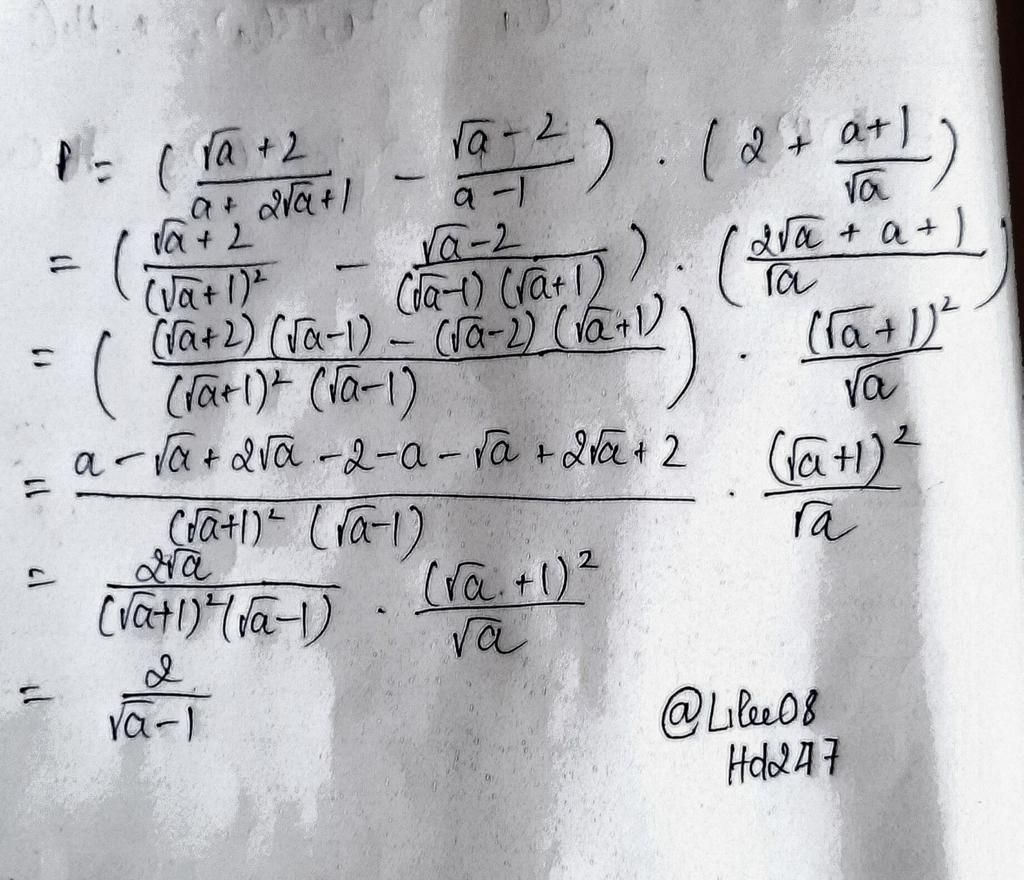 P = ( (√a + 2)/(a + 2√a + 1) − (√a − 2)/(a − 1) ) . ( 2 + (a + 1)/√a )
= ( (√a + 2)/(√a + 1)² − (√a − 2)/((√a − 1)(√a + 1)) ) . ( (2√a + a + 1)/√a )
= ( ((√a + 2)(√a − 1) − (√a − 2)(√a + 1))/((√a + 1)²(√a − 1)) ) . (√a + 1)²/√a
= (a − √a + 2√a − 2 − a − √a + 2√a + 2)/((√a + 1)²(√a − 1)) . (√a + 1)²/√a
= 2√a/((√a + 1)²(√a − 1)) . (√a + 1)²/√a
= 2/(√a − 1)
@Lilee08
Hd247